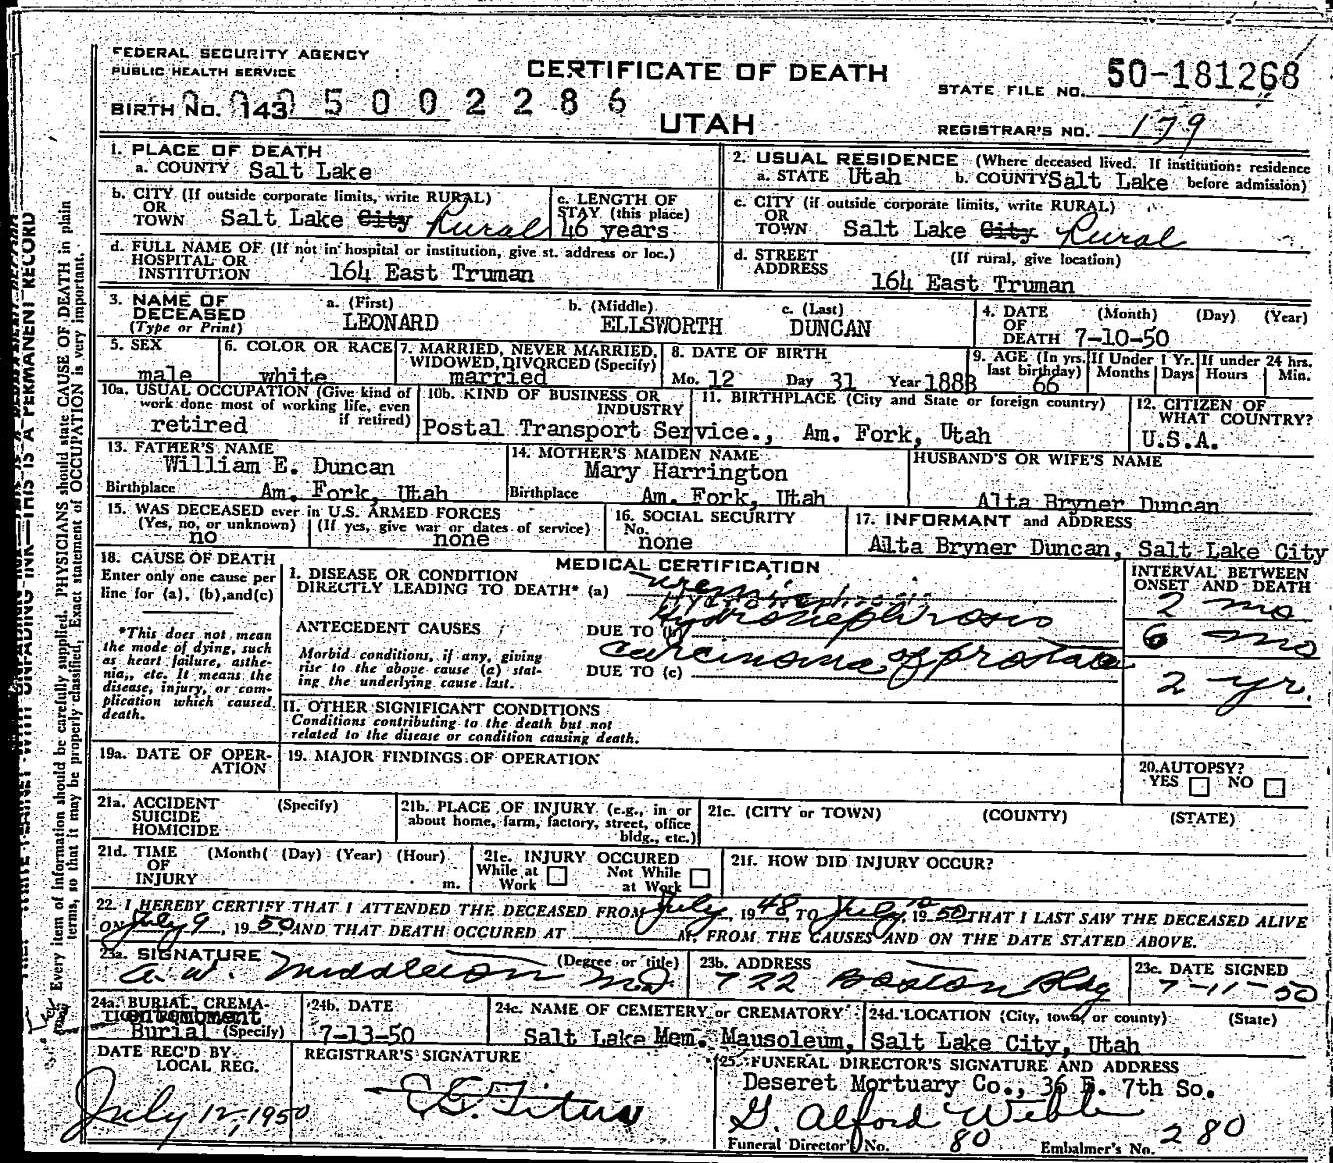 FEDERAL SECURITY AGENCY
PUBLIC HEALTH SERVICE
CERTIFICATE OF DEATH
STATE FILE NO. 50-181268
BIRTH NO. 143 5002286
UTAH
REGISTRAR'S NO. 179
1. PLACE OF DEATH
a. COUNTY Salt Lake
2. USUAL RESIDENCE (Where deceased lived. If institution: residence before admission)
a. STATE Utah b. COUNTY Salt Lake
b. CITY (If outside corporate limits, write RURAL) OR TOWN Salt Lake City Rural
c. LENGTH OF STAY (this place) 46 years
c. CITY (if outside corporate limits, write RURAL) OR TOWN Salt Lake City Rural
d. FULL NAME OF (If not in hospital or institution, give st. address or loc.) HOSPITAL OR INSTITUTION 164 East Truman
d. STREET ADDRESS (If rural, give location) 164 East Truman
3. NAME OF DECEASED (Type or Print)
a. (First) LEONARD
b. (Middle) ELLSWORTH
c. (Last) DUNCAN
4. DATE OF DEATH (Month) (Day) (Year) 7-10-50
5. SEX male
6. COLOR OR RACE white
7. MARRIED, NEVER MARRIED, WIDOWED, DIVORCED (Specify) married
8. DATE OF BIRTH Mo. 12 Day 31 Year 1883
9. AGE (In yrs. last birthday) 66
If Under 1 Yr. Months Days
If under 24 hrs. Hours Min.
10a. USUAL OCCUPATION (Give kind of work done most of working life, even if retired) retired
10b. KIND OF BUSINESS OR INDUSTRY Postal Transport Service.,
11. BIRTHPLACE (City and State or foreign country) Am. Fork, Utah
12. CITIZEN OF WHAT COUNTRY? U.S.A.
13. FATHER'S NAME William E. Duncan
Birthplace Am. Fork, Utah
14. MOTHER'S MAIDEN NAME Mary Harrington
Birthplace Am. Fork, Utah
HUSBAND'S OR WIFE'S NAME
Alta Bryner Duncan
15. WAS DECEASED ever in U.S. ARMED FORCES
(Yes, no, or unknown) no
(If yes, give war or dates of service) none
16. SOCIAL SECURITY No. none
17. INFORMANT and ADDRESS
Alta Bryner Duncan, Salt Lake City
18. CAUSE OF DEATH
Enter only one cause per line for (a), (b), and (c)
*This does not mean the mode of dying, such as heart failure, asthenia, etc. It means the disease, injury, or complication which caused death.
MEDICAL CERTIFICATION
INTERVAL BETWEEN ONSET AND DEATH
I. DISEASE OR CONDITION DIRECTLY LEADING TO DEATH* (a) Uremia
2 mo
ANTECEDENT CAUSES DUE TO (b) Hydronephrosis
6 mo
Morbid conditions, if any, giving rise to the above cause (a) stating the underlying cause last.
DUE TO (c) Carcinoma of prostate
2 yr.
II. OTHER SIGNIFICANT CONDITIONS
Conditions contributing to the death but not related to the disease or condition causing death.
19a. DATE OF OPERATION
19. MAJOR FINDINGS OF OPERATION
20. AUTOPSY? YES NO
21a. ACCIDENT SUICIDE HOMICIDE (Specify)
21b. PLACE OF INJURY (e.g., in or about home, farm, factory, street, office bldg., etc.)
21c. (CITY or TOWN) (COUNTY) (STATE)
21d. TIME OF INJURY (Month( (Day) (Year) (Hour) m.
21e. INJURY OCCURED While at Work Not While at Work
21f. HOW DID INJURY OCCUR?
22. I HEREBY CERTIFY THAT I ATTENDED THE DECEASED FROM July, 1948, TO July 10, 1950 THAT I LAST SAW THE DECEASED ALIVE
ON July 9, 1950 AND THAT DEATH OCCURED AT M, FROM THE CAUSES AND ON THE DATE STATED ABOVE.
23a. SIGNATURE (Degree or title) A. W. Middleton M.D.
23b. ADDRESS 722 Boston Bldg
23c. DATE SIGNED 7-11-50
24a. BURIAL, CREMATION entombment Burial (Specify)
24b. DATE 7-13-50
24c. NAME OF CEMETERY or CREMATORY Salt Lake Mem. Mausoleum,
24d. LOCATION (City, town, or county) (State) Salt Lake City, Utah
DATE REC'D BY LOCAL REG.
July 12, 1950
REGISTRAR'S SIGNATURE
25. FUNERAL DIRECTOR'S SIGNATURE AND ADDRESS
Deseret Mortuary Co., 36 E. 7th So.
G. Alford Webb
Funeral Director's No. 80 Embalmer's No. 280
THIS IS A PERMANENT RECORD
Every item of information should be carefully supplied. PHYSICIANS should state CAUSE OF DEATH in plain
terms, so that it may be properly classified. Exact statement of OCCUPATION is very important.